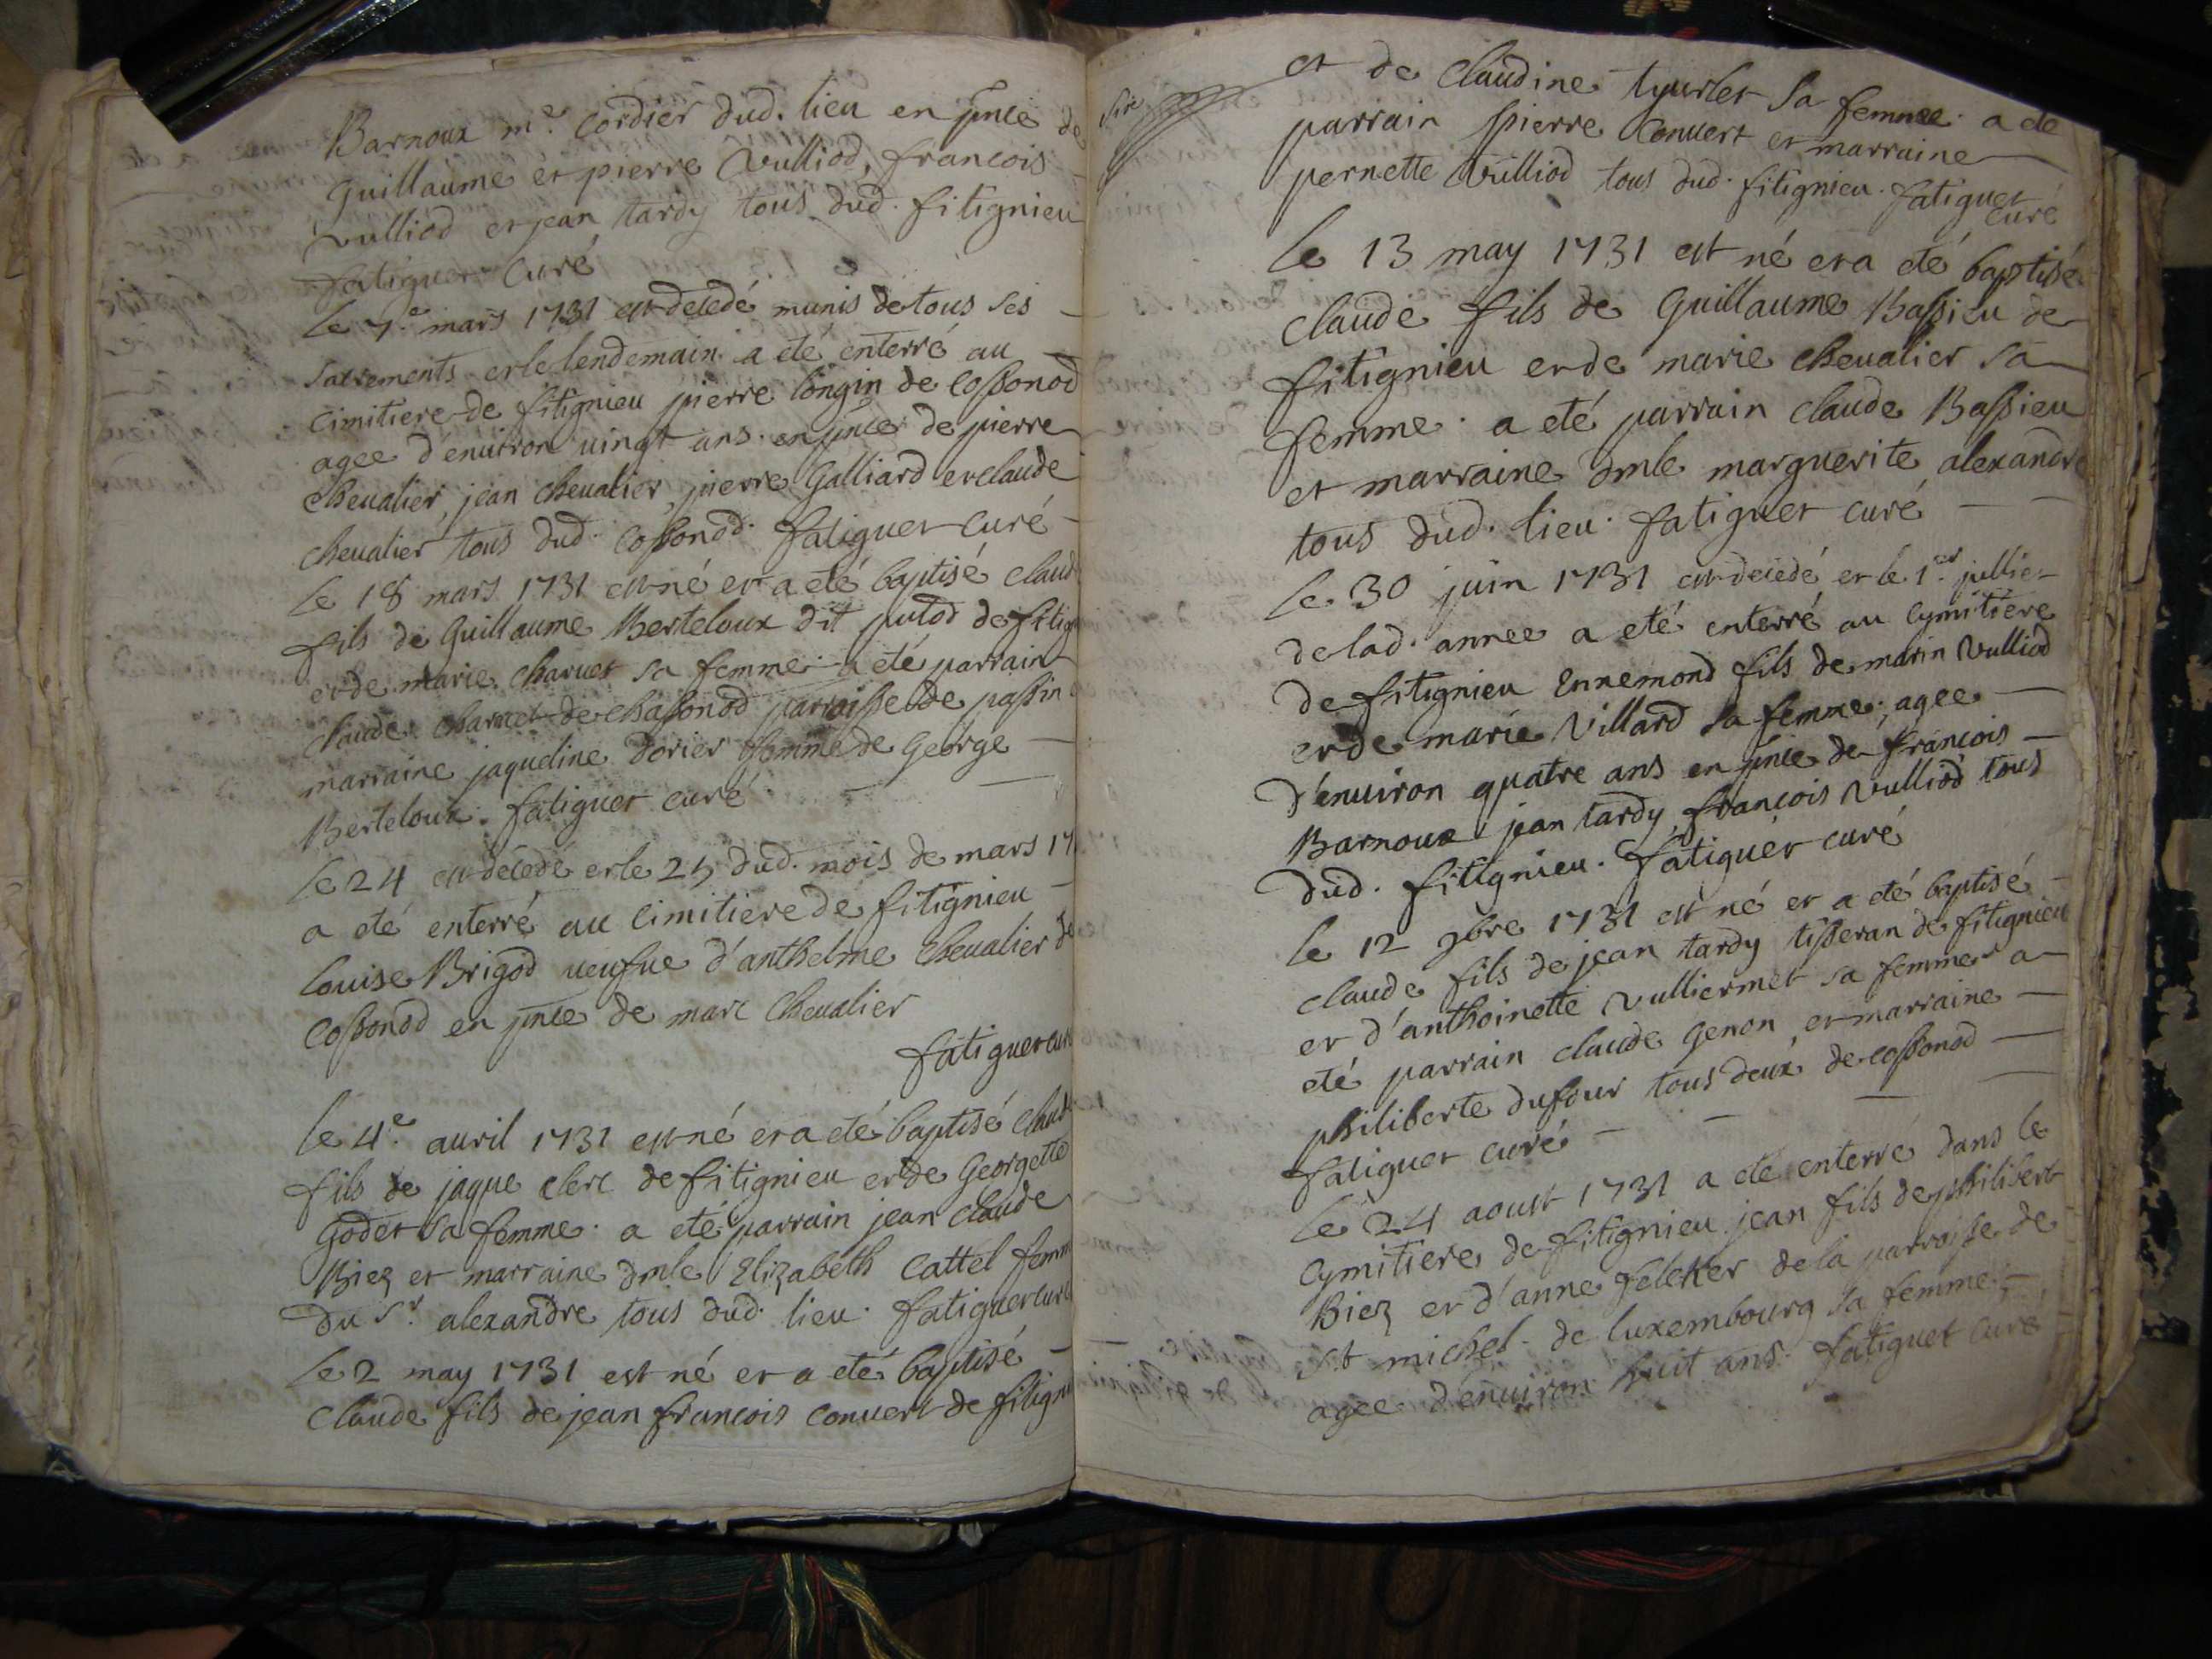 Barnoux m.e Cordier dud. lieu en pnce de
Guillaume et pierre Vulliod, francois
vulliod et jean tardy tous dud. fitignieu
fatiguet curé
le 7.e mars 1731 est decedé munis de tous ses
sacrements et le lendemain a eté enterré au
cimitiere de fitignieu pierre longin de Cossonod
agee d'enuiron vingt ans. en pnce de pierre
cheualier, jean cheualier, pierre Galliard et claude
cheualier tous dud. Cossonod. fatiguet curé
le 18 mars 1731 est né et a eté baptisé claud
fils de Guillaume Berteloux dit putod de fitign
et de marie charuet sa femme. a eté parrain
claude charuet de chassonod parroisse de passin
marraine jaqueline dorier femme de George
Berteloux. fatiguet curé
le 24 est decedé et le 25 dud. mois de mars 17
a eté enterré au cimitiere de fitignieu
louise Brigod veufue d'anthelme cheualier de
Cossonod en pnce de marc cheualier
fatiguet curé
le 4.e auril 1731 est né et a eté baptisé claude
fils de jaque clerc de fitignieu et de Georgette
Godet sa femme. a eté parrain jean claude
Biez et marraine dmle Elizabeth Cattel femme
du s.r alexandre tous dud. lieu. fatiguet curé
le 2 may 1731 est né et a eté baptisé
claude fils de jean francois conuert de fitigni
et de claudine sa femme. a eté
parrain pierre Conuert et marraine
pernette Vulliod tous dud. fitignieu. fatiguet
curé
le 13 may 1731 est né et a eté baptisé
claude fils de Guillaume Bassieu de
fitignieu et de marie cheualier sa
femme. a eté parrain claude Bassieu
et marraine dmle marguerite alexandre
tous dud. lieu. fatiguet curé
le 30 juin 1731 est decedé et le 1.er jullier
de lad. annee a eté enterré au cymitiere
de fitignieu Ennemond fils de marin Vulliod
et de marie Villard sa femme, agee
d'enuiron quatre ans en pnce de francois
Barnoux jean tardy françois Vulliod tous
dud. fitignieu. fatiguet curé
le 12 gbre 1731 est né et a eté baptisé
claude fils de jean tardy tisseran de fitignieu
et d'anthoinette Vulliermet sa femme a
eté parrain claude Genon et marraine
philiberte dufour tous deux de cossonod
fatiguet curé
le 24 aoust 1731 a eté enterré dans le
cymitiere de fitignieu jean fils de philibert
Biez et d'anne de la parroisse de
st michel de luxembourg sa femme,
agee d'enuiron huit ans. fatiguet curé